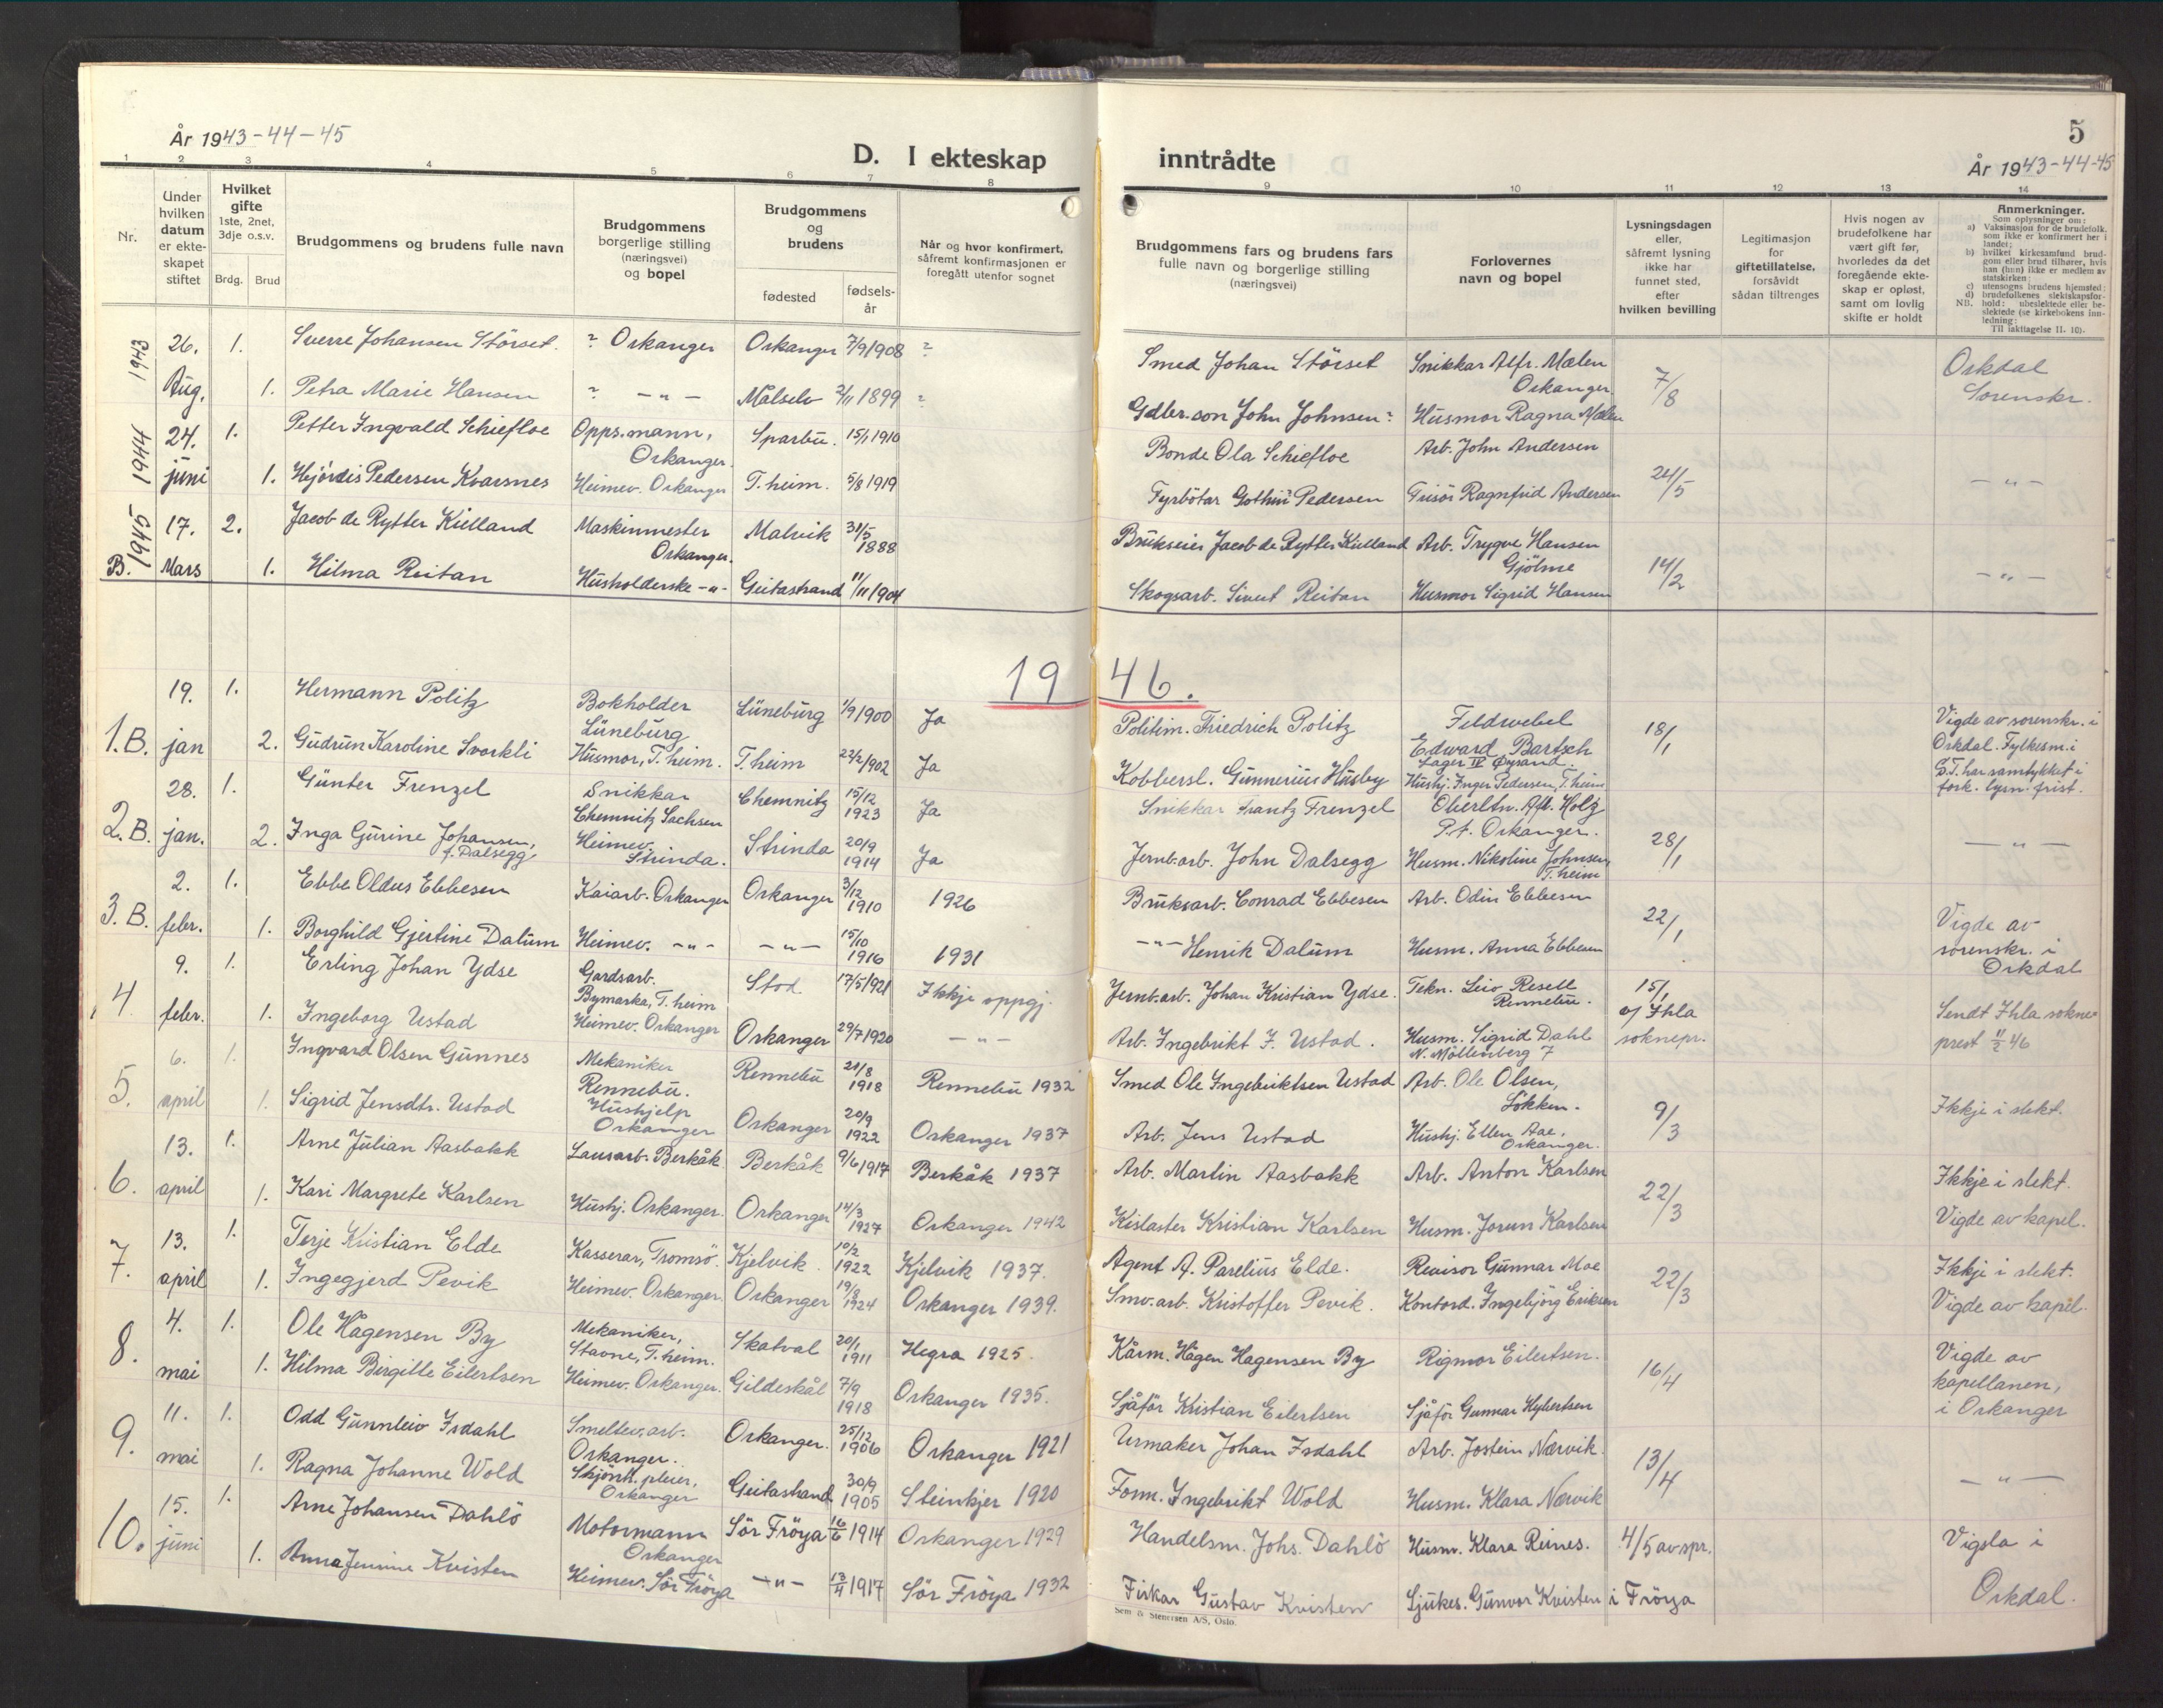 År 1943-44-45
D. I ekteskap inntrådte
5
År 1943-44-45
1 2 3 4 5 6 7 8 9 10 11 12 13 14
Nr.
Under hvilken datum er ekteskapet stiftet
Hvilket gifte
1ste, 2net, 3dje o.s.v.
Brdg. Brud
Brudgommens og brudens fulle navn
Brudgommens borgerlige stilling (næringsvei) og bopel
Brudgommens og brudens
fødested
fødselsår
Når og hvor konfirmert, såfremt konfirmasjonen er foregått utenfor sognet
Brudgommens fars og brudens fars fulle navn og borgerlige stilling (næringsvei)
Forlovernes navn og bopel
Lysningsdagen eller, såfremt lysning ikke har funnet sted, efter hvilken bevilling
Legitimasjon for giftetillatelse, forsåvidt sådan tiltrenges
Hvis nogen av brudefolkene har vært gift før, hvorledes da det foregående ekteskap er opløst, samt om lovlig skifte er holdt
Anmerkninger.
Som oplysninger om:
a) Vaksinasjon for de brudefolk, som ikke er konfirmert her i landet;
b) hvilket kirkesamfund brudgom eller brud tilhører, hvis han (hun) ikke er medlem av statskirken;
c) utensogns brudens hjemsted;
d) brudefolkenes slektskapsforhold: ubeslektede eller beslektede (se kirkebokens innledning:
NB. Til iakttagelse II. 10).
1943 26. 1. Sverre Johansen Störset. ? Orkanger Orkanger 7/9 1908 ? Smed Johan Störset Snikkar Alfr. Mælen Orkanger 7/8 Orkdal Sorenskr.
Aug. 1. Petra Marie Hansen ? -"- Målselv 2/11 1899 ? Gdbr.son John Johnsen? Husmor Ragna Mælen
1944 24. 1. Petter Ingvald Schiefloe Opps.mann, Orkanger. Sparbu. 15/1 1910 Bonde Ola Schiefloe Arb. John Andersen 24/5 -"-
juni 1. Hjördis Pedersen Kvarsnes Heimev. Orkanger T.heim. 5/8 1919 Fyrbötar Pedersen Frisör Ragnfrid Andersen
1945 17. 2. Jacob de Rytter Kielland Maskinmester Orkanger. Malvik 31/5 1888 Brukseier Jacob de Rytter Kielland Arb. Trygve Hansen Gjölme 14/2 -"-
B. Mars 1. Hilma Reitan Husholderske -"- Geitastrand 11/11 1904 Skogsarb. Sivert Reitan Husmor Sigrid Hansen
1946.
19. 1. Hermann Politz Bokholder Lüneburg Lüneburg 1/9 1900 Ja Politim. Friedrich Politz Feldwebel Edward Bartsch Lager IV Øysand. 18/1 Vigde av sorenskr. i Orkdal. Fylkesm. i S.T. har samtykket i fork. lysn. frist.
1.B. jan 2. Gudrun Karoline Svorkli Husmor, T.heim. T.heim 22/2 1902 Ja Kobbersl. Gunnerius Husby Hushj. Inger Pedersen, T.heim
28. 1. Günter Frenzel Snikkar Chemnitz Sachsen Chemnitz 15/12 1923 Ja Snikkar Frantz Frenzel Oberltn. Holz P.t. Orkanger. 28/1 -"-
2.B. jan. 2. Inga Gurine Johansen, f. Dalsegg Heimev. Strinda. Strinda 20/9 1914 Ja Jernb.arb. John Dalsegg Husm. Nikoline Johnsen, T.heim
2. 1. Ebbe Oldus Ebbesen Kaiarb. Orkanger Orkanger 3/12 1910 1926 Bruksarb. Conrad Ebbesen Arb. Odin Ebbesen 22/1 Vigde av sorenskr. i Orkdal
3.B. febr. 1. Borghild Gjertine Dalum Heimev. -"- -"- 15/10 1916 1931 -"- Henrik Dalum Husm. Anna Ebbesen
9. 1. Erling Johan Ydse Gardsarb. Bymarka, T.heim Stod 17/5 1921 Ikkje oppgj. Jernb.arb. Johan Kristian Ydse. Tekn. Leiv Resell Rennebu. 15/1 av Ihla soknepr. Sendt Ihla sokneprest 11/2 46
4 febr. 1. Ingeborg Ustad Heimev. Orkanger Orkanger 29/7 1920 -"- Arb. Ingebrikt I. Ustad. Husm. Sigrid Dahl N. Möllenberg 7
6. 1. Ingvard Olsen Gunnes Mekaniker Rennebu. Rennebu 21/8 1918 Rennebu 1932 Smed Ole Ingebriktsen Ustad Arb. Ole Olsen, Lökken. 9/3 Ikkje i slekt.
5. april 1. Sigrid Jensdtr. Ustad Hushjelp Orkanger Orkanger 20/9 1922 Orkanger 1937 Arb. Jens Ustad Hushj. Ellen Aae, Orkanger.
13. 1. Arne Julian Aasbakk Lausarb. Berkåk Berkåk 9/6 1917 Berkåk 1937 Arb. Martin Aasbakk Arb. Anton Karlsen 22/3 Ikkje i slekt.
6. april 1. Kari Margrete Karlsen Hushj. Orkanger. Orkanger 14/3 1927 Orkanger 1942 Kislaster Kristian Karlsen Husm. Jorun Karlsen Vigde av kapel.
13. 1. Terje Kristian Elde Kasserar, Tromsö. Kjelvik. 10/2 1922 Kjelvik 1937. Agent A. Parelius Elde. Revisor Gunnar Moe 22/3 Ikkje i slekt.
7. april 1. Ingegjerd Pevik Heimev. Orkanger. Orkanger 19/8 1924 Orkanger 1939. Smv.arb. Kristoffer Pevik. Kontord. Ingebjörg Eriksen Vigde av kapel.
4. 1. Ole Hagensen By Mekaniker, Stavne, T.heim. Skatval 20/1 1911 Hegra 1925. Kårm. Hagen Hagensen By Rigmor Eilertsen. 16/4 Vigde av kapellanen, i Orkanger
8. mai 1. Hilma Birgitte Eilertsen Heimev. Orkanger. Gildeskål 7/9 1918 Orkanger 1935. Sjåför Kristian Eilertsen Sjåför Gunnar Hybertsen
11. 1. Odd Gunnleiv Isdahl Smeltev.arb. Orkanger. Orkanger. 25/12 1906 Orkanger 1921 Urmaker Johan Isdahl Arb. Jostein Nærvik. 13/4 -"-
9. mai 1. Ragna Johanne Wold Skjönh.pleier, Orkanger Geitastrand 30/9 1905 Steinkjer 1920 Form. Ingebrikt Wold Husm. Klara Nærvik
15. 1. Arne Johansen Dahlö Motormann Orkanger Sör Fröya 16/6 1914 Orkanger 1929 Handelsm. Johs. Dahlö Husm. Klara Reines. 4/5 av spr. i Fröya Vigsla i Orkdal.
10. juni 1. Anna Jensine Kvisten Heimev. Sör Fröya -"- 13/4 1917 Sör Fröya 1932 Fiskar Gustav Kvisten Sjukes. Gunvor Kvisten
Sem & Stenersen A/S, Oslo.